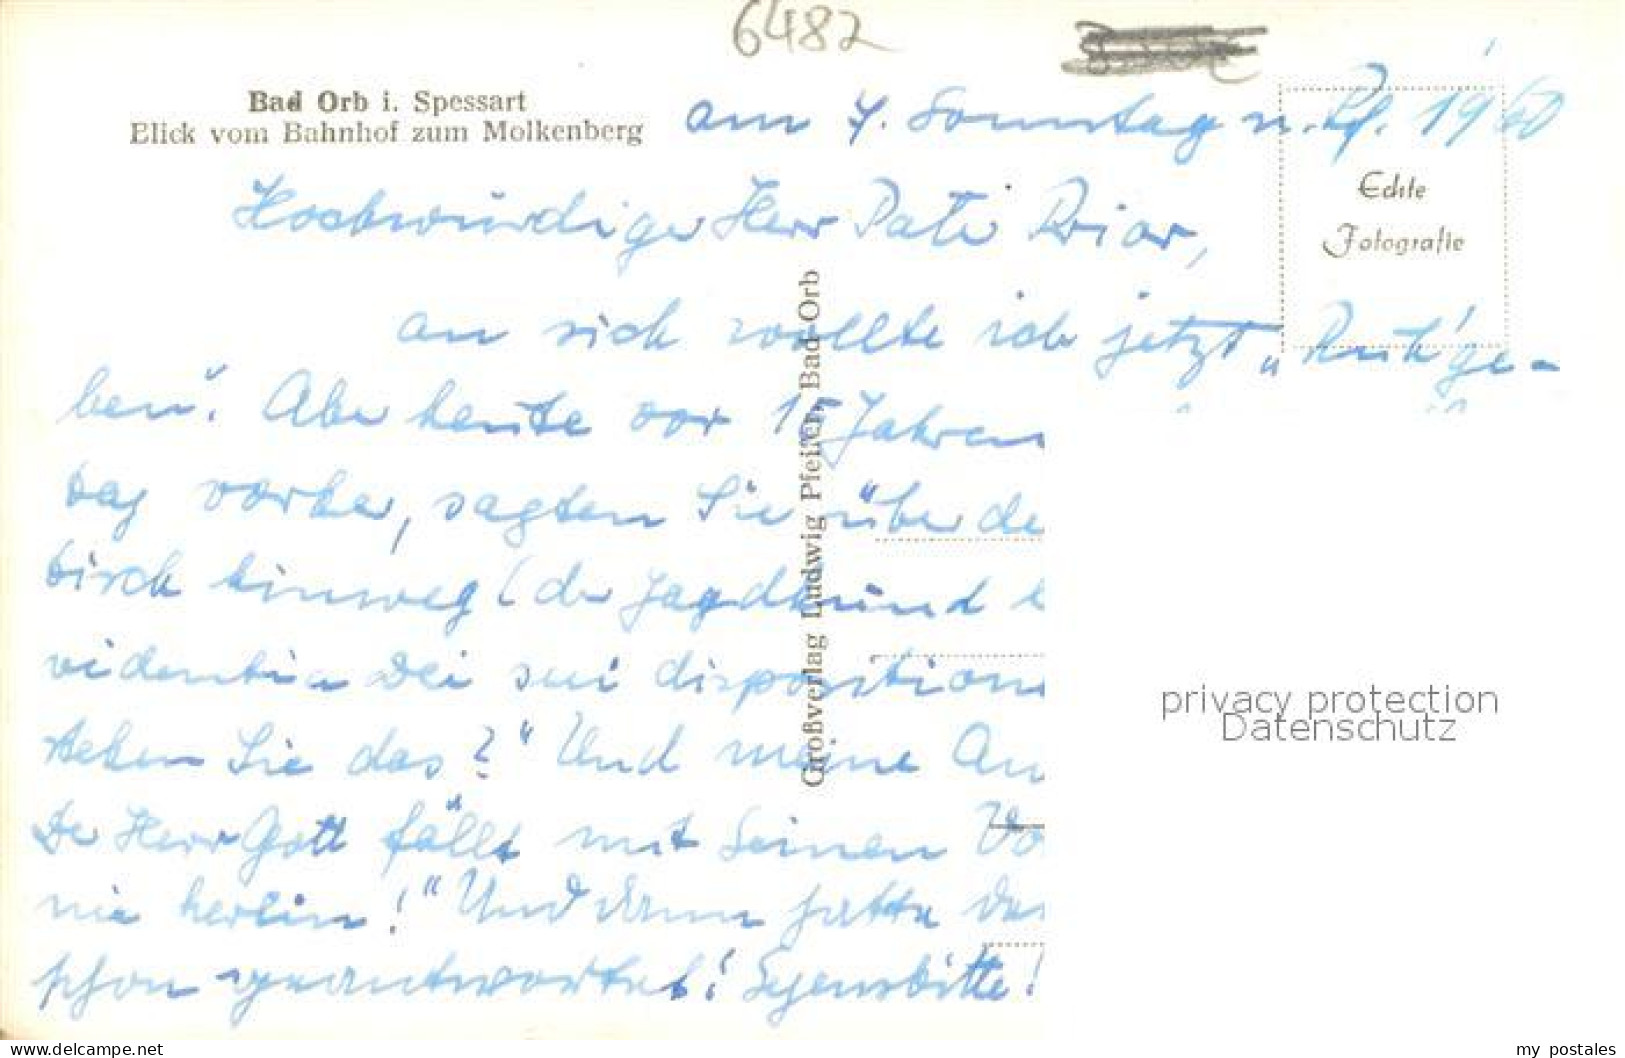 6482
Bad Orb i. Spessart
Blick vom Bahnhof zum Molkenberg
am 7. Sonntag n. Pf. 1960
Echte
Fotografie
Hochwürdiger Herr Pater Prior,
an sich wollte ich jetzt „Ruh' ge-
ben". Aber heute vor 15 Jahren
Tag vorher, sagten Sie über de
Tisch hinweg (der Jagdhund
videntia Dei sui disposition
stehen Sie das?" Und meine An
Der Herr Gott fällt mit Seinen Vo
nie herein!" Und dann hatte
schon geantwortet! Segensbitte!
Großverlag Ludwig Pfeifer, Bad Orb
privacy protection
Datenschutz
www.delcampe.net
my_postales